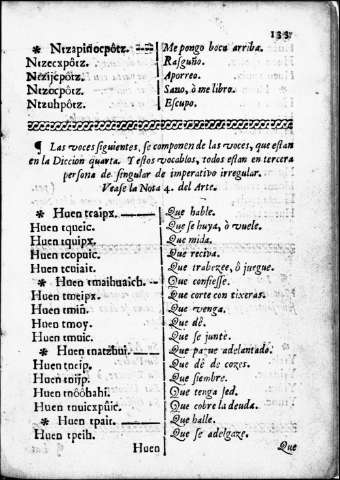 133
* Ntzapiñocpôtz. Me pongo boca arriba.
Ntzecxpôtz. Rasguño.
Ntzijcpôtz. Aporreo.
Ntzocpôtz. Sano, ò me libro.
Ntzuhpôtz. Escupo.
¶ Las voces siguientes, se componen de las voces, que estan
en la Diccion quarta. Y estos vocablos, todos estan en tercera
persona de singular de imperativo irregular.
Vease la Nota 4. del Arte.
* Huen tcaipx. Que hable.
Huen tqueic. Que se huya, ò vuele.
Huen tquipx. Que mida.
Huen tcopuic. Que reciva.
Huen tcuiait. Que trabezee, ô juegue.
* Huen tmaihuaich. Que confiesse.
Huen tmeipx. Que corte con tixeras.
Huen tmiñ. Que venga.
Huen tmoy. Que dê.
Huen tmuic. Que se junte.
* Huen tnatzhui. Que pague adelantado.
Huen tneip. Que dê de cozes.
Huen tnijp. Que siembre.
Huen tnôôhahi. Que tenga sed.
Huen tnuicxpûic. Que cobre la deuda.
* Huen tpait. Que halle.
Huen tpeih. Que se adelgaze.
Huen Que